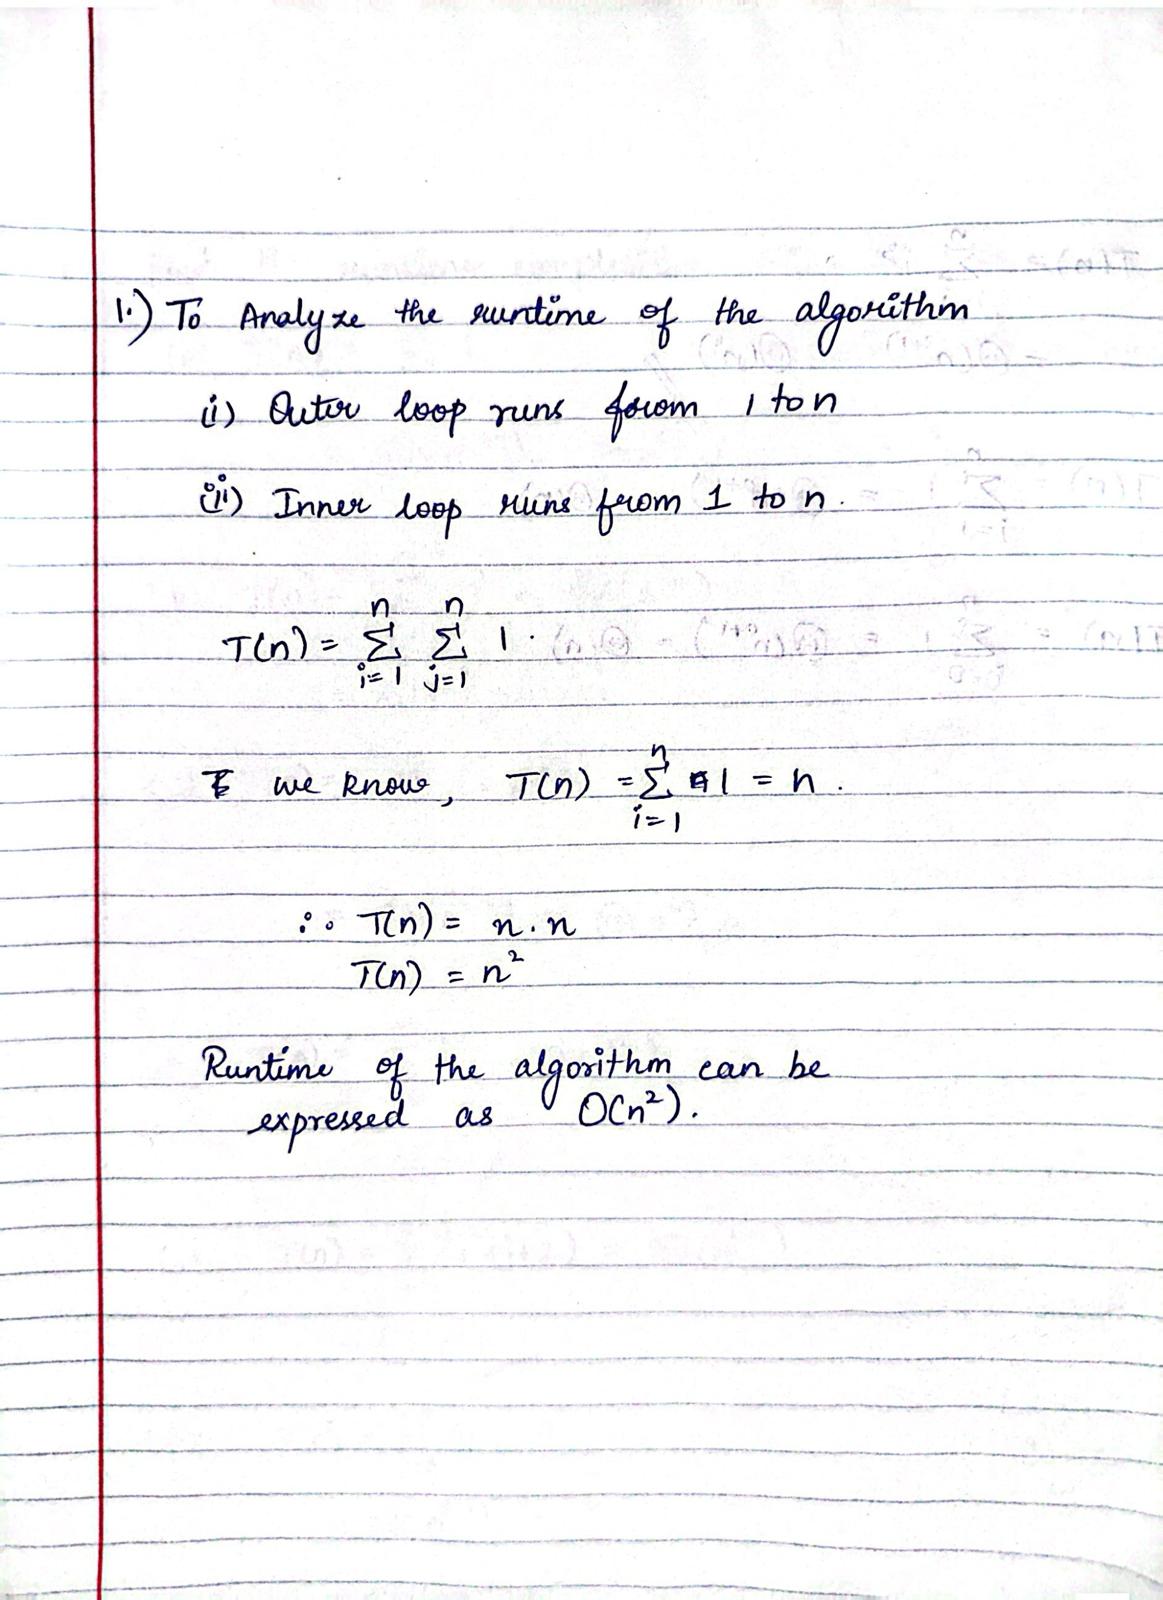 1.) To Analyze the runtime of the algorithm
(i) Outer loop runs from 1 to n
(ii) Inner loop runs from 1 to n.
T(n) = n∑i=1 n∑j=1 1.
we know, T(n) = n∑i=1 1 = n.
∴ T(n) = n.n
T(n) = n²
Runtime of the algorithm can be
expressed as O(n²).